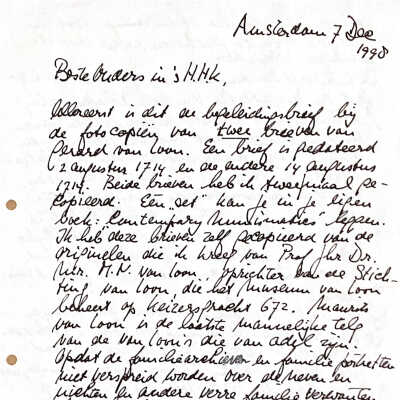 Amsterdam 7 Dec
1998
Beste Ouders in 's H.H.K,
Allereerst is dit de begeleidingsbrief bij
de fotocopiën van twee brieven van
Gerard van Loon. Een brief is gedateerd
2 augustus 1714 en de andere 14 augustus
1714. Beide brieven heb ik tweemaal ge-
copieerd. Een "set" kan je in je eigen
boek: Contemporary Numismatics leggen.
Ik heb deze brieven zelf gecopieerd van de
originelen die ik kreeg van Prof Jhr Dr.
Mr. M.N. van Loon, oprichter van de Stich-
ting van Loon, die het museum van Loon
beheert op Keizersgracht 672. Maurits
van Loon is de laatste mannelijke telg
van de van Loon's die van adel zijn.
Opdat de familiearchieven en familie portretten
niet verspreid worden over de neven en
nichten en andere verre familie verwanten